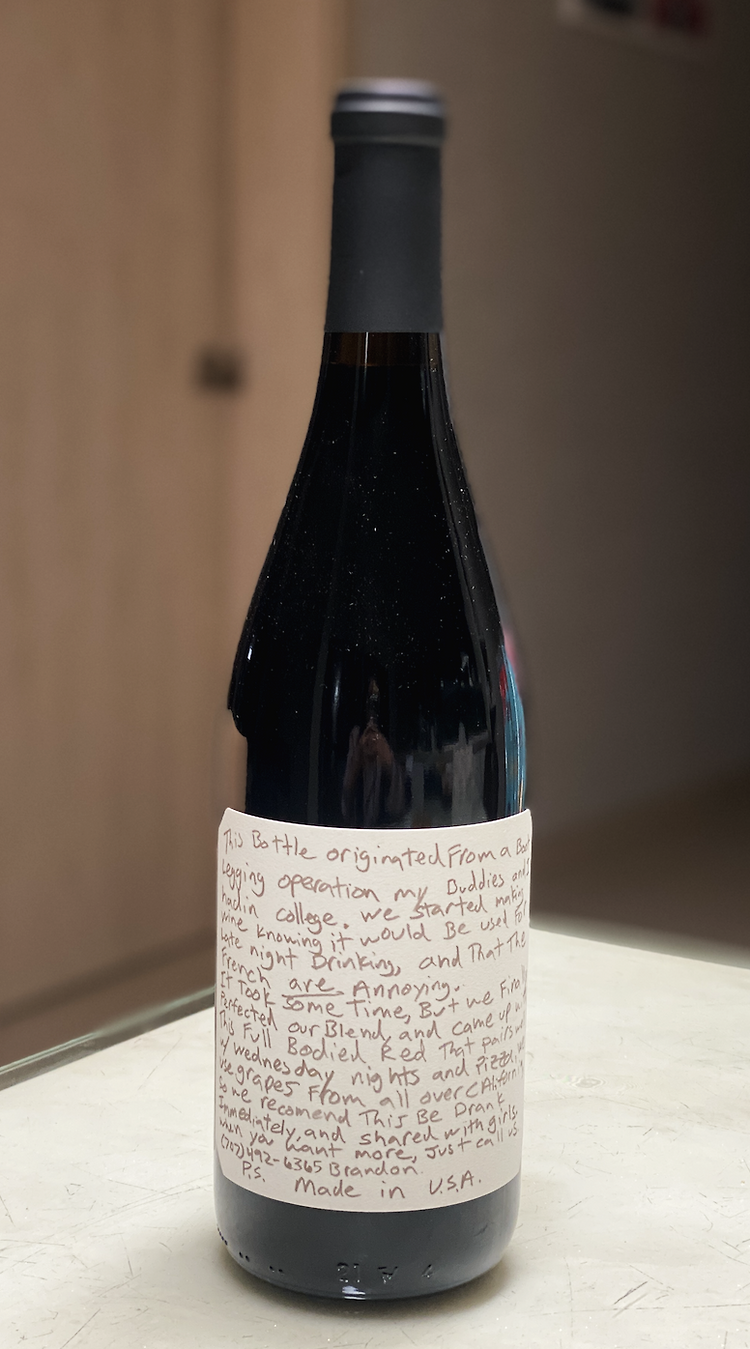 This Bottle originated From a Boot
Legging operation my Buddies and I
had in college. we started making
wine knowing it would Be used For
Late night Drinking, and That The
French are Annoying.
It Took some Time, But we Finally
Perfected our Blend, and came up
This Full Bodied Red That pairs
w/ wednesday nights and Pizza,
use grapes From all over CAliforn
So we recomend This Be Drank
Immediately, and shared with girls.
when you want more, Just call us.
(707) 492-6365 Brandon.
P.S. Made in U.S.A.